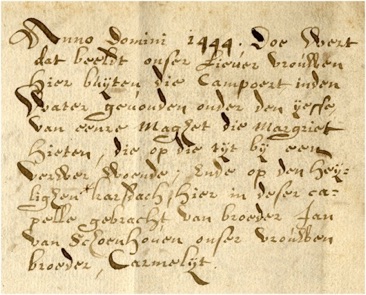 Anno Domini 1444. Doe Wert
dat beeldt onser liever vrouwen
hier buyten die Campoert inden
Water gevonden onder den yesse
van eenre Maghet die Margriet
hieten, die op die tyt by een
verwer Woende; Ende op den hey-
lighen karsdach hier in deser ca-
pelle gebracht van broeder Jan
van Schoenhoven onser vrouwen
broeder, Carmelyt.